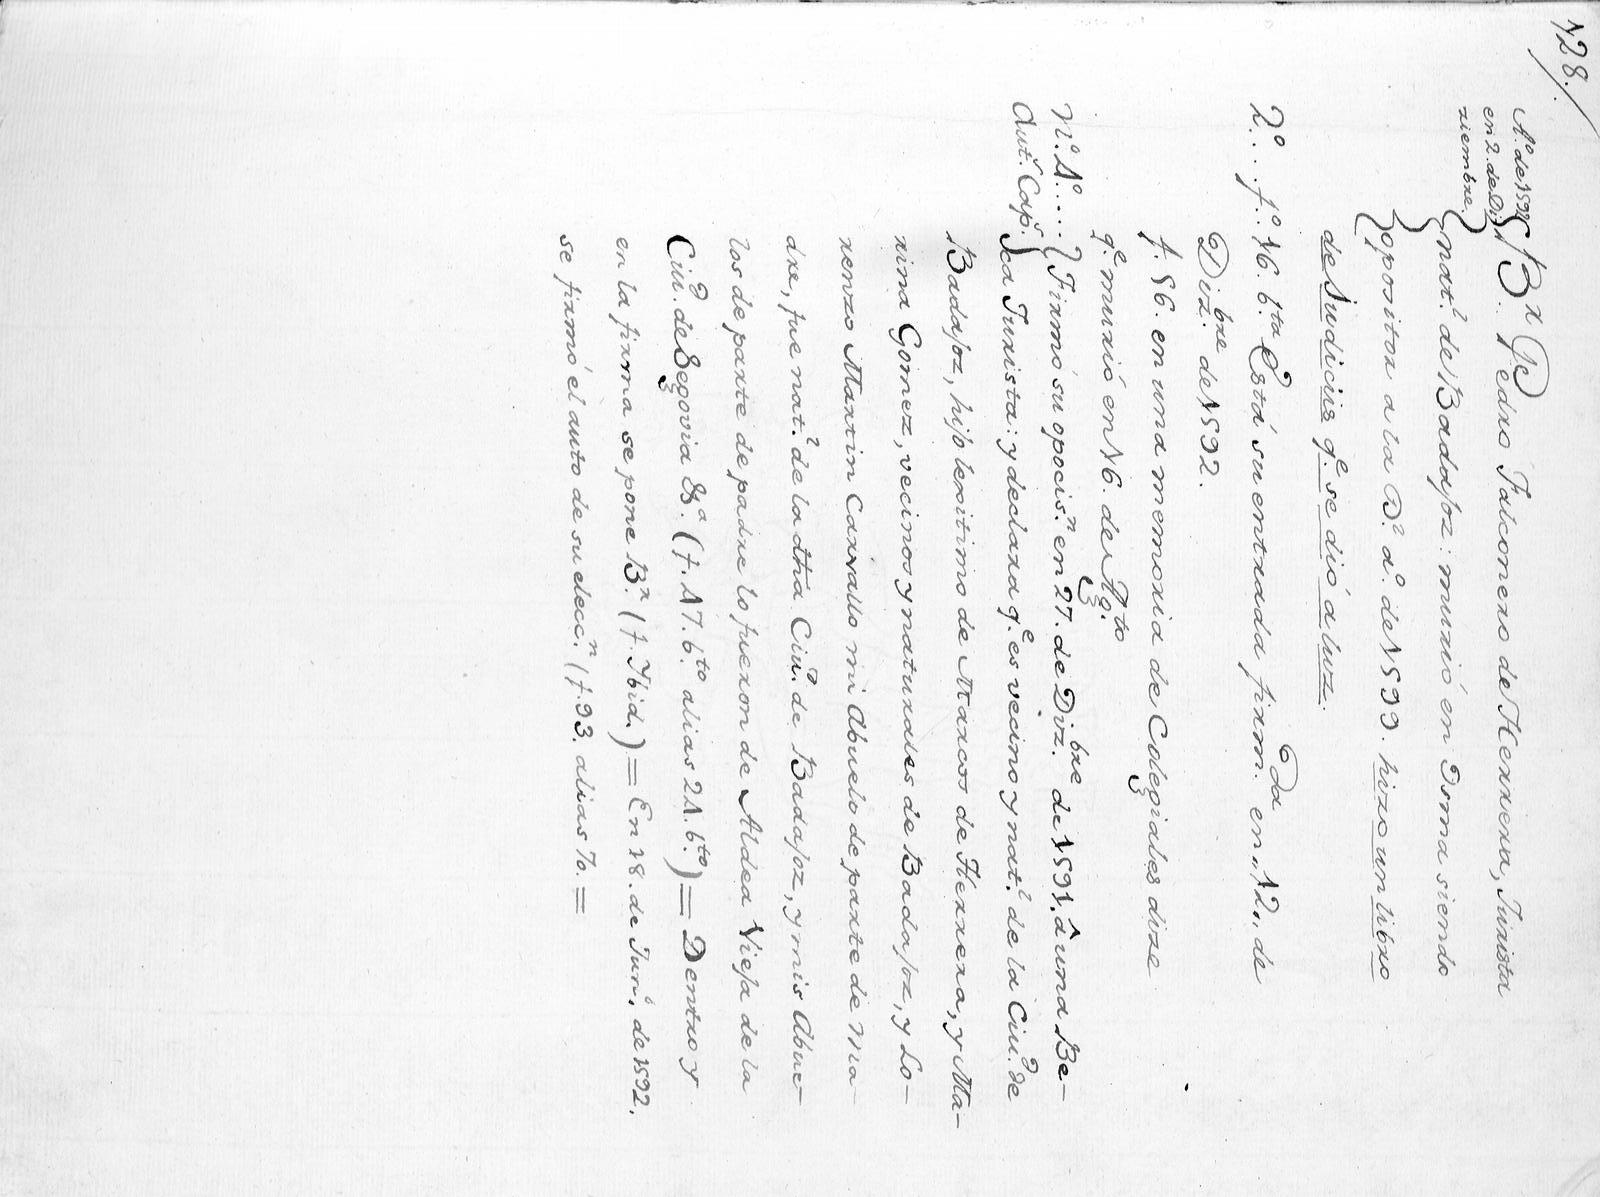 128./
A.º de 1592
en 2. de Di-
ziembre.
B.r Pedro Falconero de Herrera, Jurista
nat.l de Badajoz: murió en Osma siendo
opositor a la D.l d.º de 1599. hizo un libro
de Judiciis q.e se dió a luz.
2.º.. f.º 16. b.ta Está su entrada firm.da en,, 12,, de
Diz.bre de 1592.
f. 56. en una memoria de Colegiales dize
q.e murió en 16. de Ag.to
N.º 1.º.... Firmó su oposis.n en 27. de Diz.bre de 1591. â una Be-
Aut.s Cap.s ca Jurista: y declara q.e es vecino y nat.l de la Ciu.d de
Badajoz, hijo lexitimo de Marcos de Herrera, y Ma-
rina Gomez, vecinos y naturales de Badajoz, y Lo-
renzo Martin Carvallo mi Abuelo de parte de Ma-
dre, fue nat.l de la dha Ciu.d de Badajoz, y mis Abue-
los de parte de padre lo fueron de Aldea Vieja de la
Ciu.d de Segovia &.a (f. 17. b.to alias 21. b.to) = Dentro y
en la firma se pone B.r (f. Ibid.) = En 18. de Jun.º de 1592.
se firmó el auto de su elecc.n (f. 93. alias 70. =